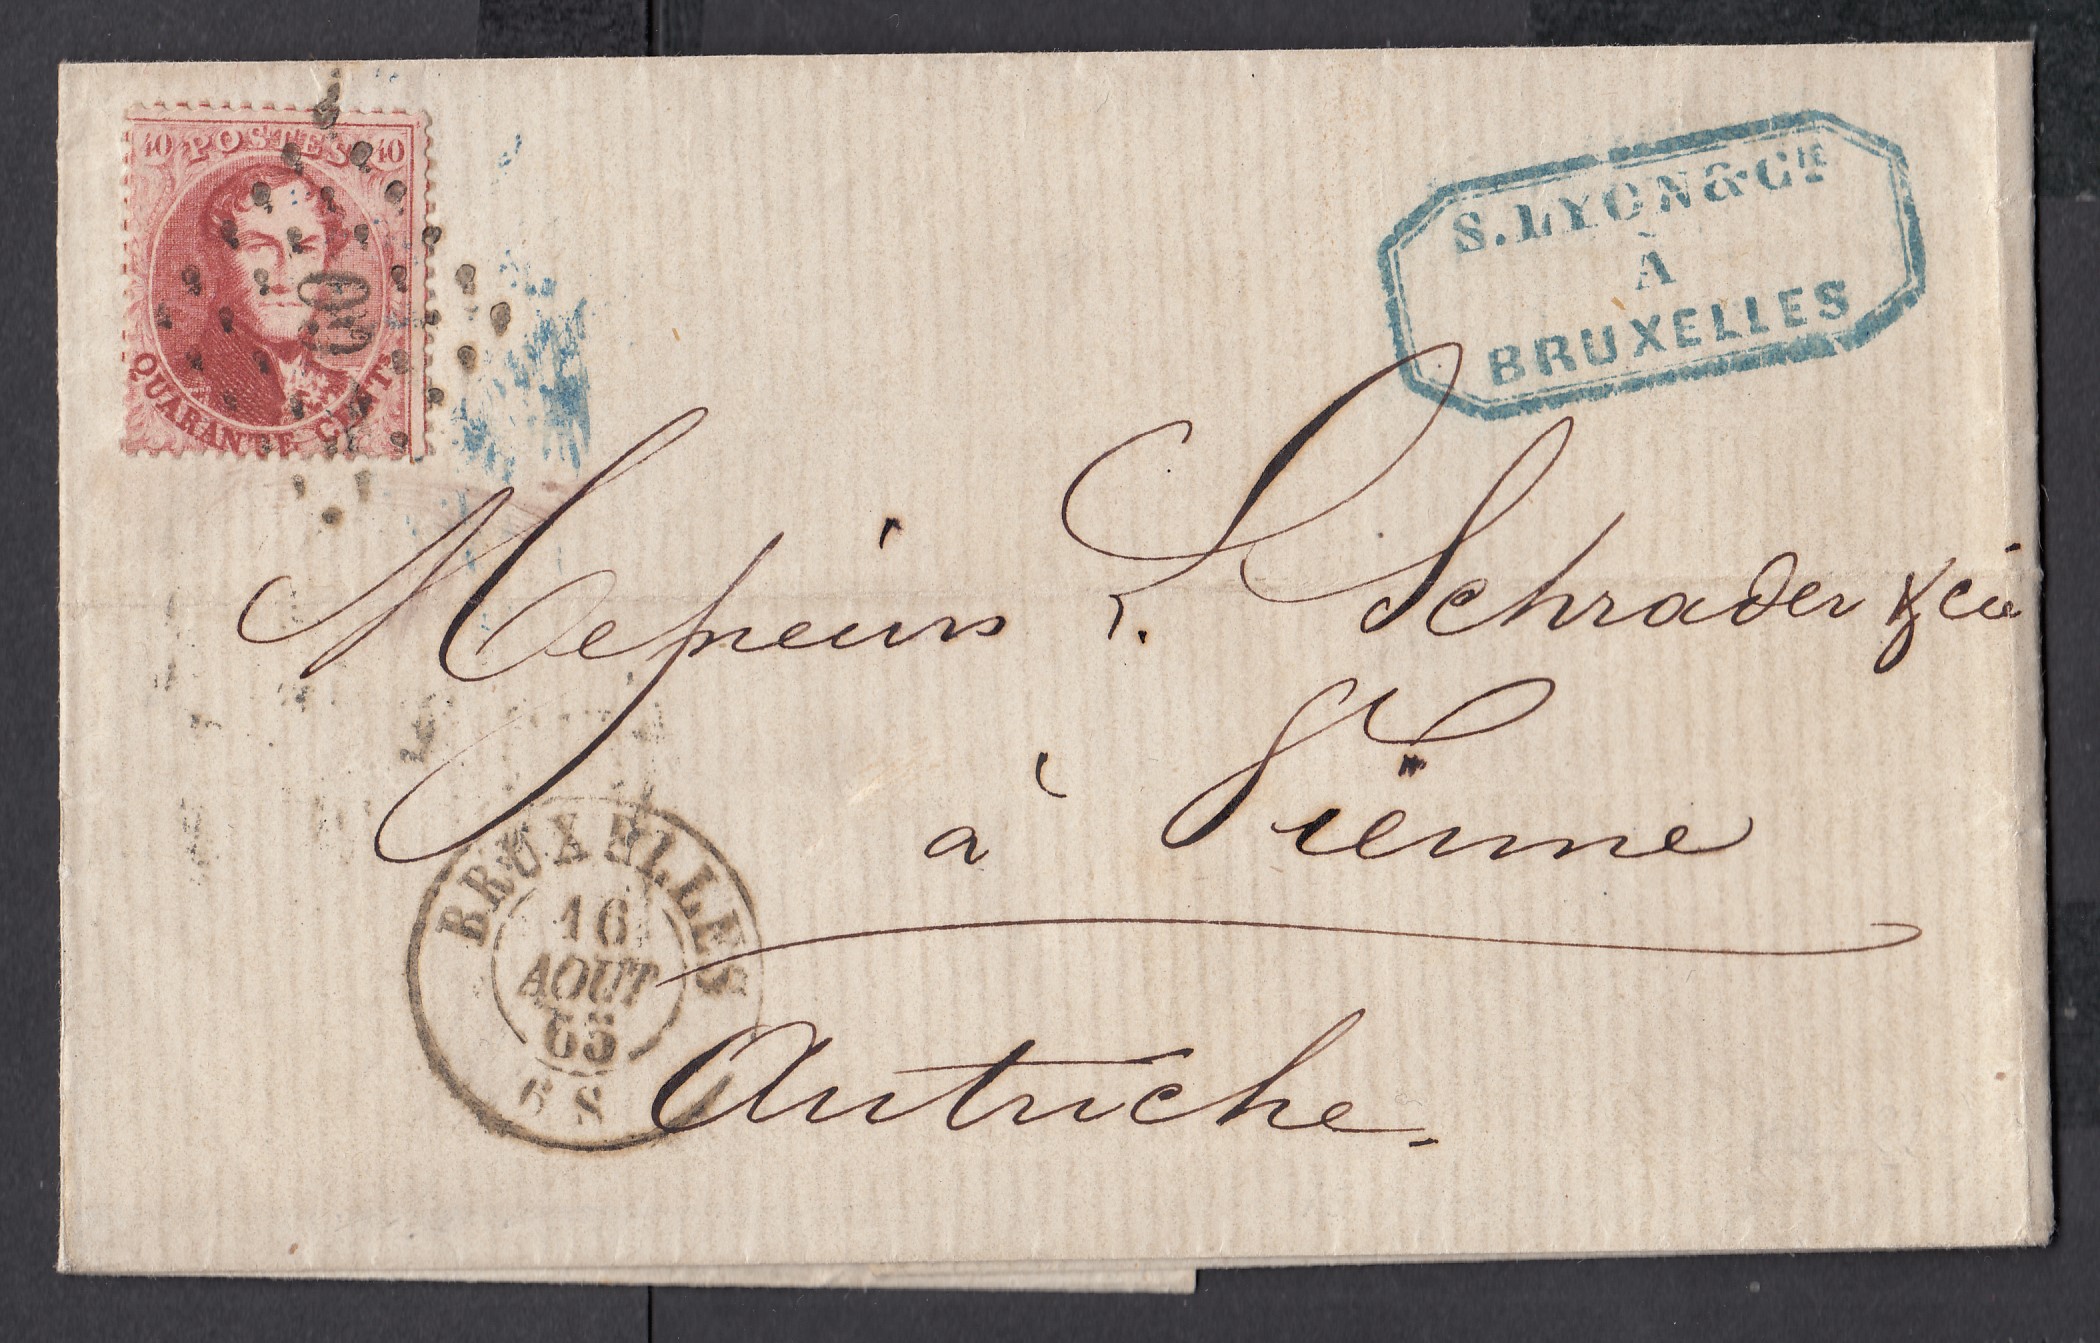 10 POSTES 10
QUARANTE CENTS
60
S. LYON & CIE
À
BRUXELLES
Messieurs L. Schrader & Cie
à Vienne
Autriche.
BRUXELLES
16
AOUT
65
6 S